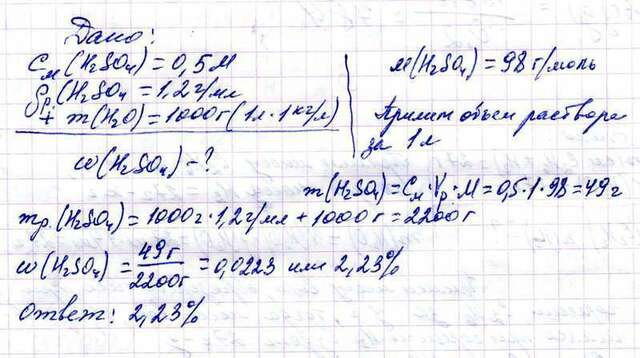 Дано:
См(H₂SO₄) = 0,5М
ρр.(H₂SO₄) = 1,2 г/мл
+ m(H₂O) = 1000г (1л · 1 кг/л)
ω(H₂SO₄) - ?
м(H₂SO₄) = 98 г/моль
Примем объем раствора
за 1 л
m(H₂SO₄) = См · Vр · М = 0,5 · 1 · 98 = 49 г
mр.(H₂SO₄) = 1000г · 1,2 г/мл + 1000 г = 2200г
ω(H₂SO₄) = 49 г / 2200г = 0,0223 или 2,23%
Ответ: 2,23%